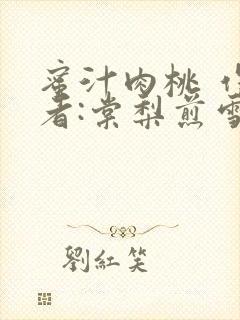 蜜汁肉桃 作
者:棠梨煎雪
劉紅笑